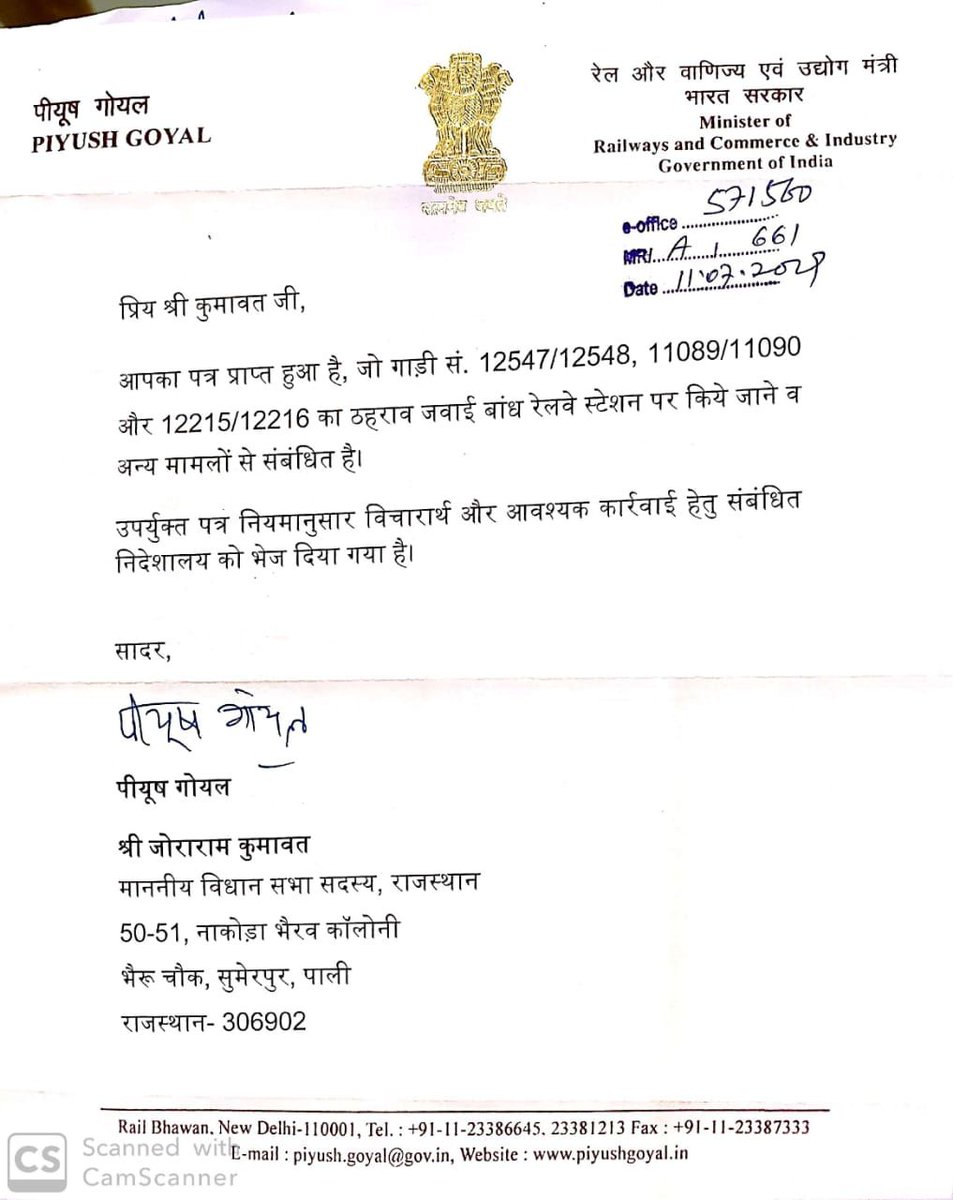 पीयूष गोयल
PIYUSH GOYAL
सत्यमेव जयते
रेल और वाणिज्य एवं उद्योग मंत्री
भारत सरकार
Minister of
Railways and Commerce & Industry
Government of India
e-office 571560
MR/ A / 661
Date 11.07.
प्रिय श्री कुमावत जी,
आपका पत्र प्राप्त हुआ है, जो गाड़ी सं. 12547/12548, 11089/11090
और 12215/12216 का ठहराव जवाई बांध रेलवे स्टेशन पर किये जाने व
अन्य मामलों से संबंधित है।
उपर्युक्त पत्र नियमानुसार विचारार्थ और आवश्यक कार्रवाई हेतु संबंधित
निदेशालय को भेज दिया गया है।
सादर,
पीयूष गोयल
पीयूष गोयल
श्री जोराराम कुमावत
माननीय विधान सभा सदस्य, राजस्थान
50-51, नाकोड़ा भैरव कॉलोनी
भैरू चौक, सुमेरपुर, पाली
राजस्थान- 306902
Rail Bhawan, New Delhi-110001, Tel. : +91-11-23386645, 23381213 Fax : +91-11-23387333
E-mail : piyush.goyal@gov.in, Website : www.piyushgoyal.in
CS Scanned with
CamScanner